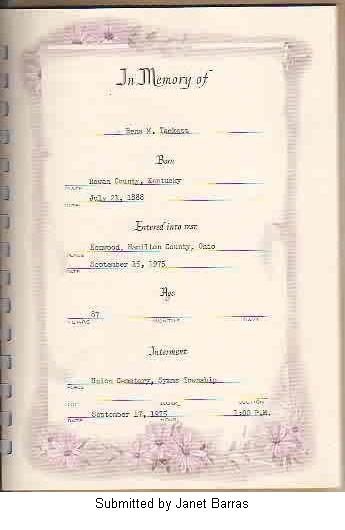 In Memory of
Rena M. Tackett
Born
Rowan County, Kentucky
PLACE
July 21, 1888
DATE
Entered into rest
Kenwood, Hamilton County, Ohio
PLACE
September 15, 1975
DATE
Age
87
YEARS MONTHS DAYS
Interment
Union Cemetery, Symms Township
PLACE
LOT BLOCK SECTION
September 17, 1975 1:00 P.M.
DATE HOUR
Submitted by Janet Barras